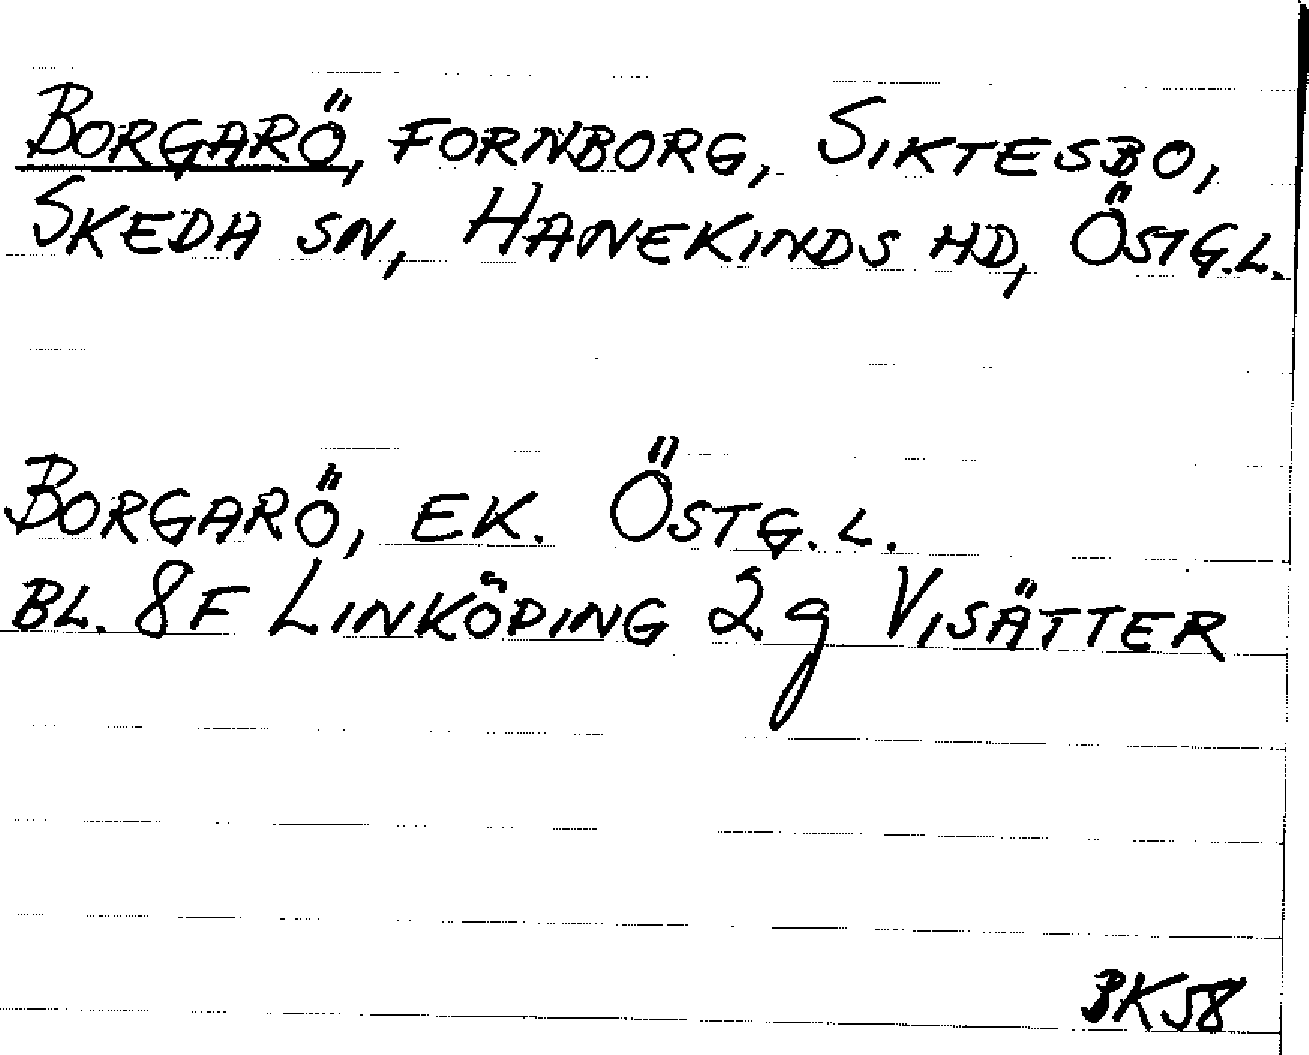 BORGARÖ, FORNBORG, SIKTESBO,
SKEDA SN, HANEKINDS HD, ÖSTG.L.
BORGARÖ, EK. ÖSTG.L.
BL. 8F LINKÖPING 2g VISÄTTER
BK58